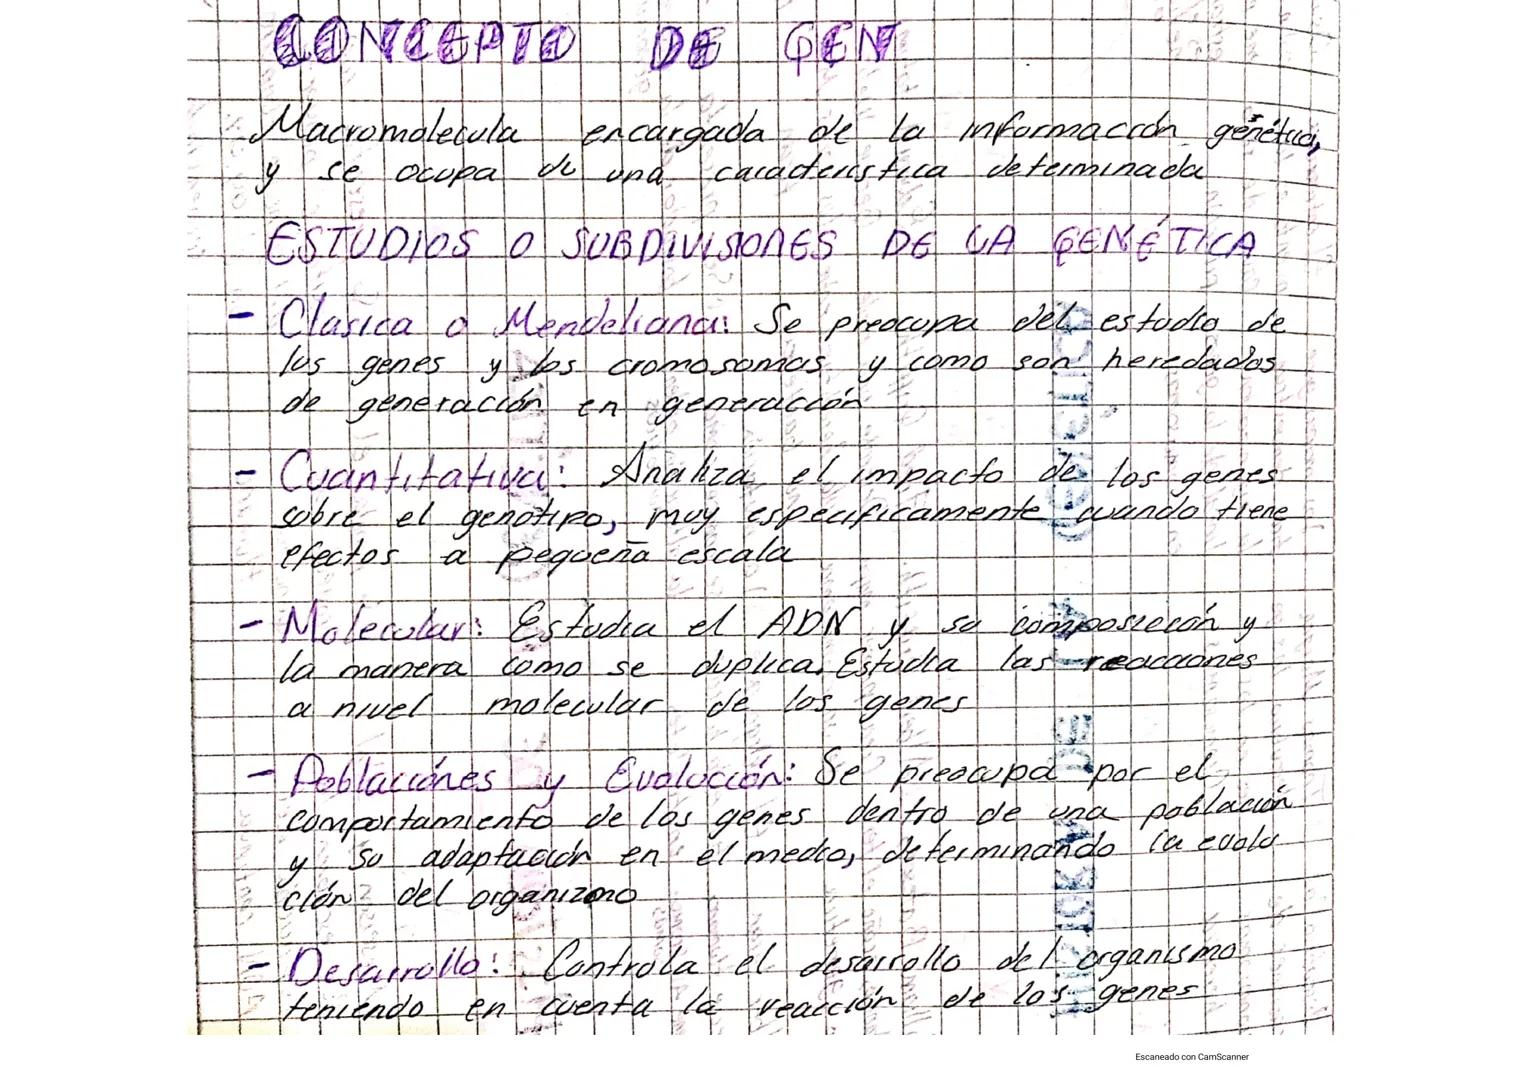 CONCEPTO DE GEN
Macromolecula encargada de la información genética,
y se ocupa de una caracteristica determinada
ESTUDIOS O SUBDIVISIONES DE LA GENÉTICA
- Clasica o Mendeliana: Se preocupa del estudio de
los genes y los cromosomas y como son heredados
de generación en generación
- Cuantitativa: Analiza el impacto de los genes
sobre el genotipo, muy especificamente cuando tiene
efectos a pequeña escala
- Molecular: Estudia el ADN y su composición y
la manera como se duplica. Estudia las reacciones
a nivel molecular de los genes
- Poblaciónes y Evolución: Se preocupa por el
comportamiento de los genes dentro de una población
y su adaptación en el medio, determinando la evolu
ción del organizmo
- Desarrollo: Controla el desarrollo del organismo
teniendo en cuenta la reacción de los genes
Escaneado con CamScanner